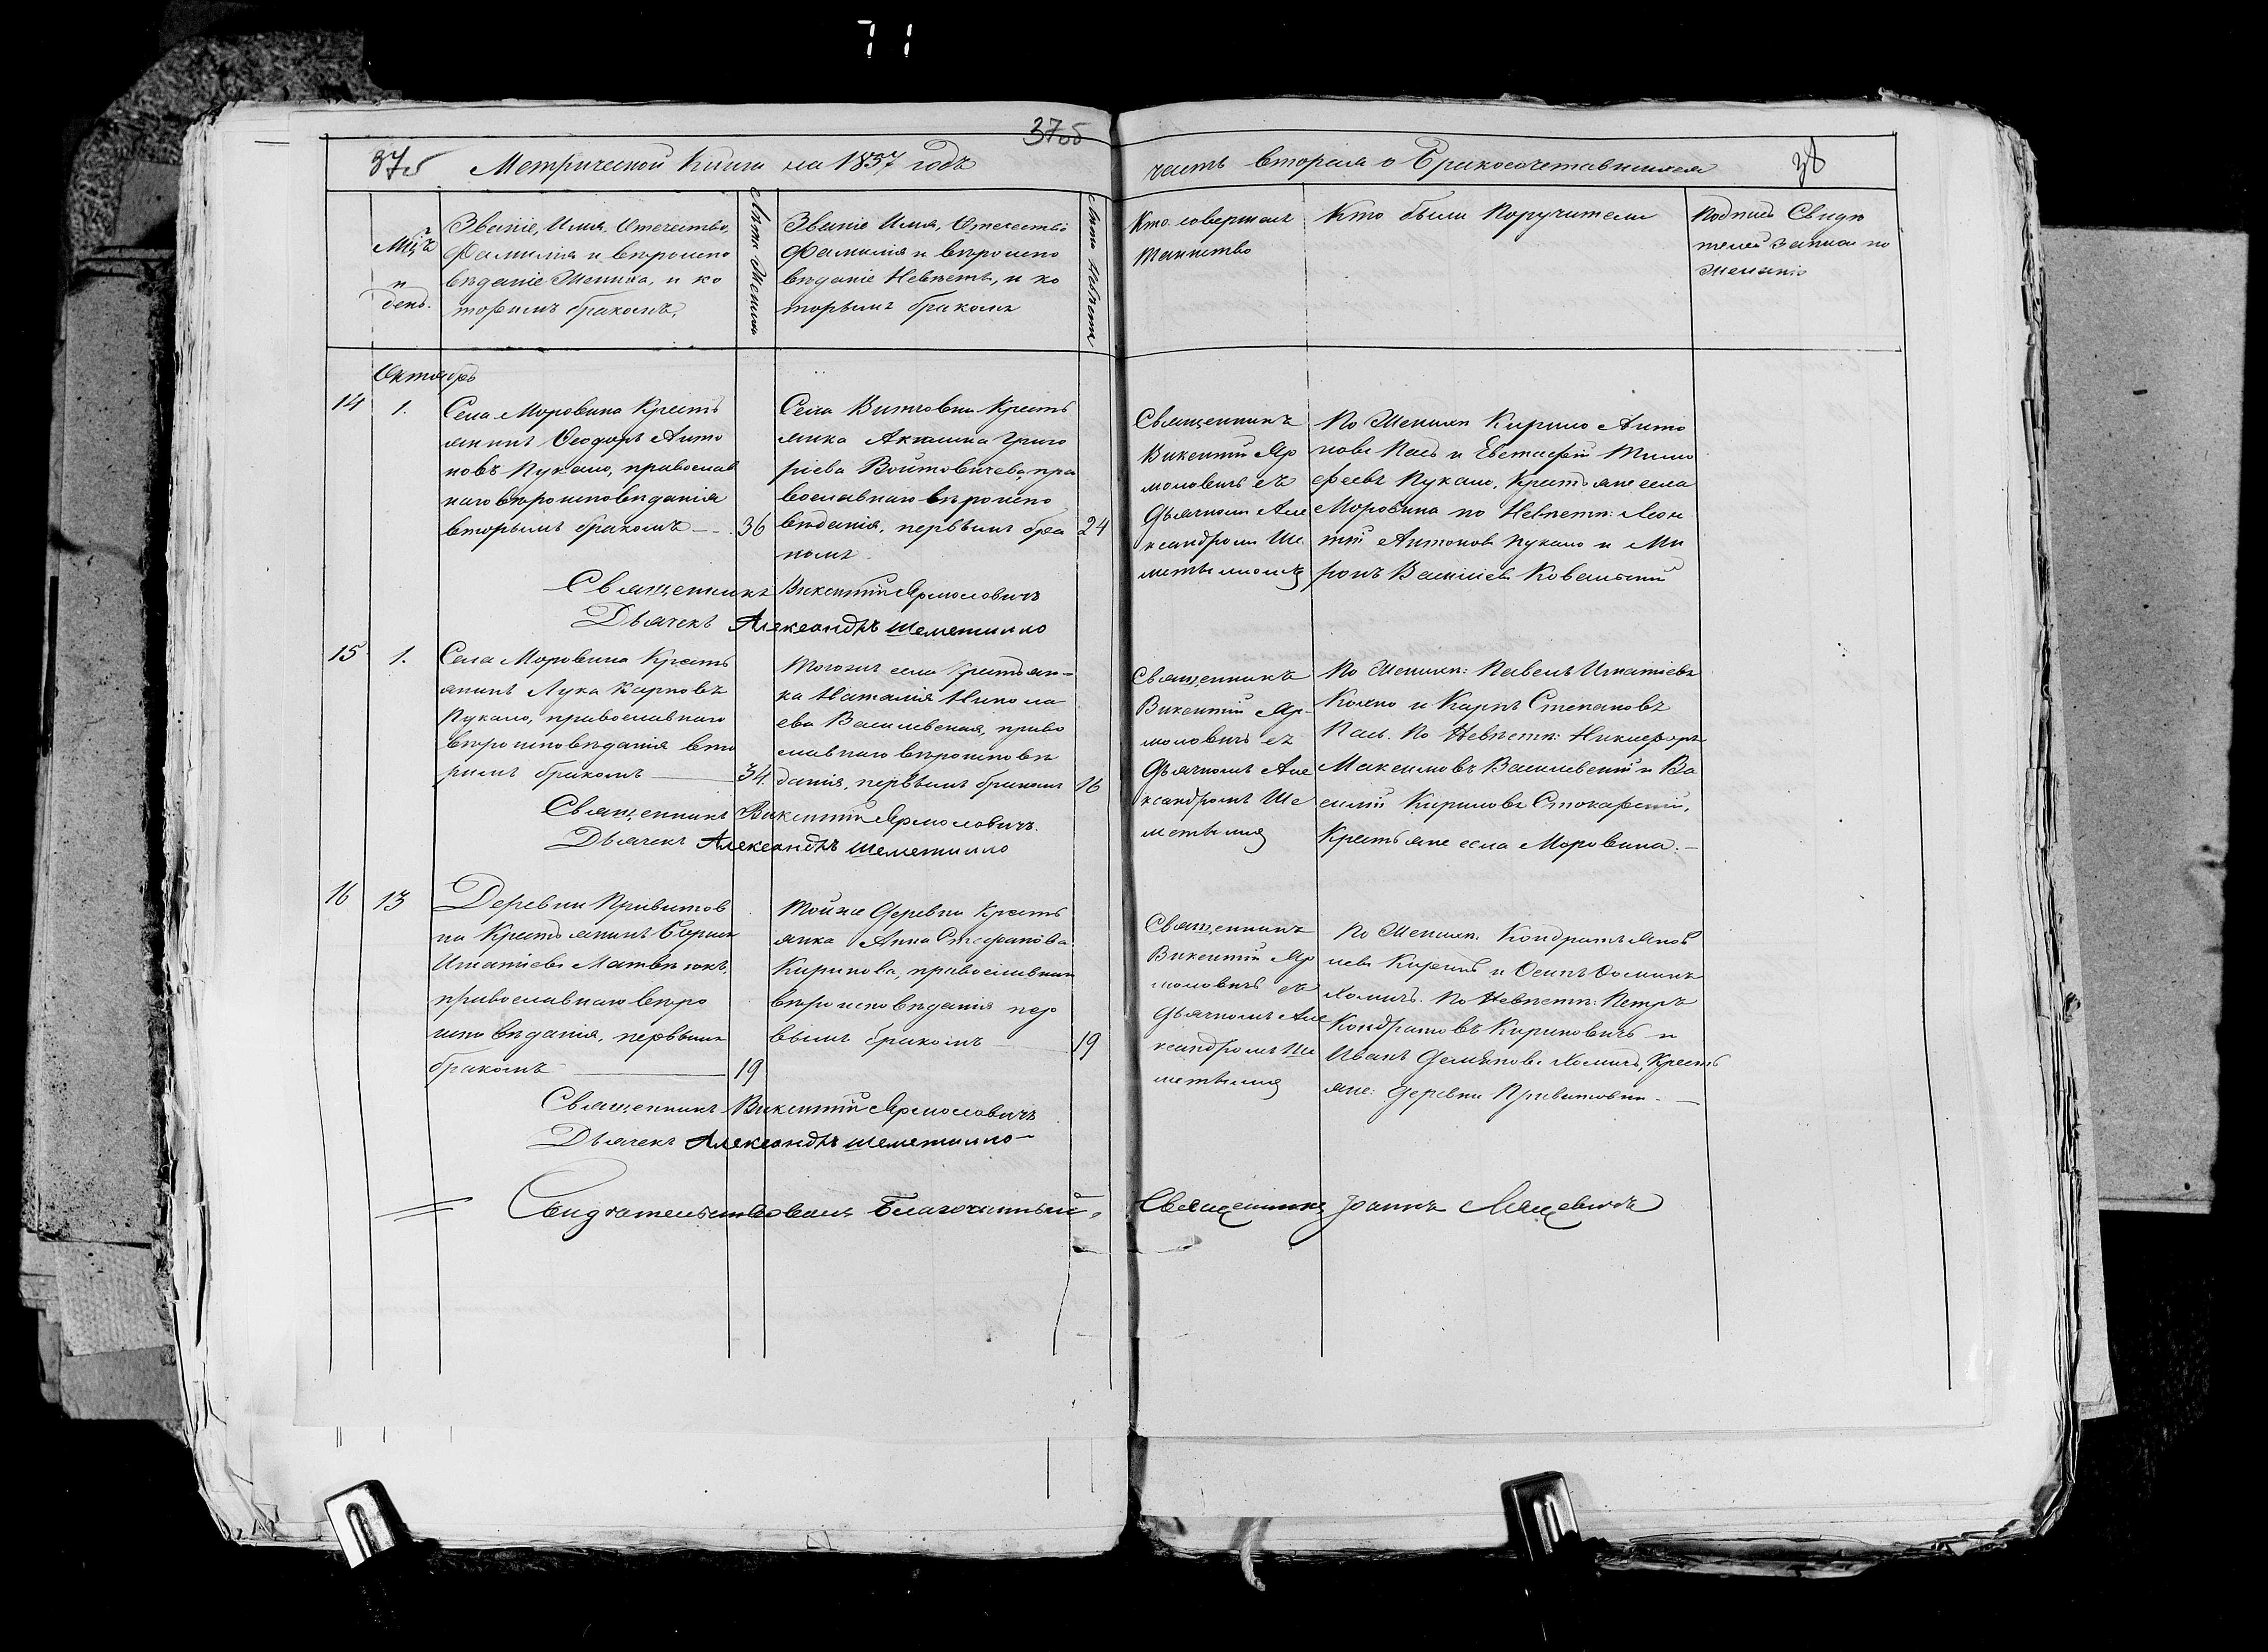 71
37об
37б Метрической Книги на 1857 годъ
часть вторая о Бракосочетавшихся 38
Мцъ и день.
Званіе, Имя, Отечество,
Фамилія и вѣроиспо
вѣданіе Жениха, и ко
торымъ бракомъ.
Лѣта Жениха
Званіе Имя, Отечество
Фамилія и вѣроиспо
вѣданіе Невѣсты, и ко
торымъ бракомъ
Лѣта Невѣсты
Кто совершалъ
таинство
Кто были Поручители
Подпись Свидѣ
телей записи по
желанію
Октябрь
14 1.
Села Моровина Кресть
янинъ Ѳеодоръ Анто
новъ Пукало, православ
наго вѣроисповѣданія
вторымъ бракомъ — 36
Села Витговки Кресть
янка Акилина Григо
ріева Войтовичева, пра
вославнаго вѣроиспо
вѣданія, первымъ бра 24
комъ
Священникъ
Викентій Яр
моловичъ съ
дьячкомъ Але
ксандромъ Ше
метылломъ
По Женихѣ Кирило Анто
новъ Пась и Евстафій Тимо
феевъ Пукало, Крестьяне села
Моровина по Невѣстѣ: Леон
тій Антоновъ Пукало и Ми
ронъ Василіевъ Ковальскій
Священникъ Викентій Ярмоловичъ
Дьячекъ Александръ Шеметилло
15 1.
Села Моровина Кресть
янинъ Лука Карповъ
Пукало, православнаго
вѣроисповѣданія вто
рымъ бракомъ — 34.
Тогожъ села Крестьян=
ка Наталія Никола
ева Василевская, право
славнаго вѣроисповѣ
данія, первымъ бракомъ 16
Священникъ
Викентій Яр-
моловичъ съ
дьячкомъ Але
ксандромъ Ше
метилло
По Женихѣ: Павелъ Игнатіевъ
Колно и Карпъ Степановъ
Пась. По Невѣстѣ: Никифоръ
Максимовъ Василевскій и Ва
силій Кириловъ Стокарскій,
Крестьяне села Моровина. —
Священникъ Викентій Ярмоловичъ.
Дьячекъ Александръ Шеметилло
16 13
Деревни Привитов
ки Крестьянинъ Борисъ
Игнатіевъ Матвѣюкъ,
православнаго вѣро
исповѣданія, первымъ
бракомъ — 19
Тойже деревни Кресть
янка Анна Стефанова
Киринова, православнаго
вѣроисповѣданія пер
вымъ бракомъ — 19
Священникъ
Викентій Яр
моловичъ съ
дьячкомъ Але
ксандромъ Ше
метилло
По Женихѣ: Кондратъ Яков
левъ Кирикъ и Осипъ Ѳоминъ
Хомичъ. По Невѣстѣ: Петръ
Кондратовъ Кириновичъ и
Иванъ Демьяновъ Хомичъ, Кресть
яне: деревни Привитовки. —
Священникъ Викентій Ярмоловичъ
Дьячекъ Александръ Шеметилло —
Свидѣтельствовалъ Благочинный, Священникъ Іоаннъ Мацевичъ